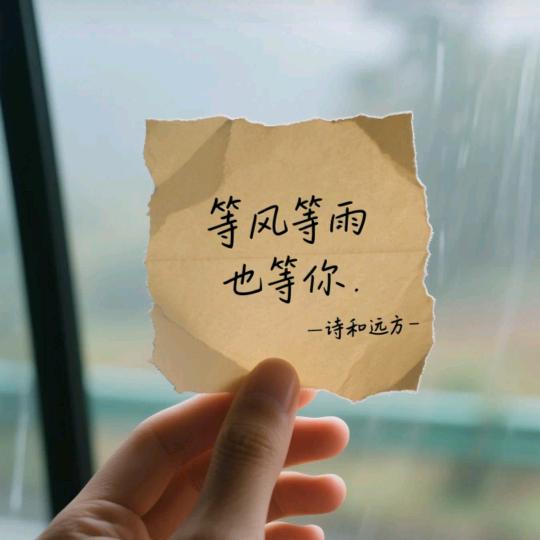 等风等雨
也等你.
—诗和远方—